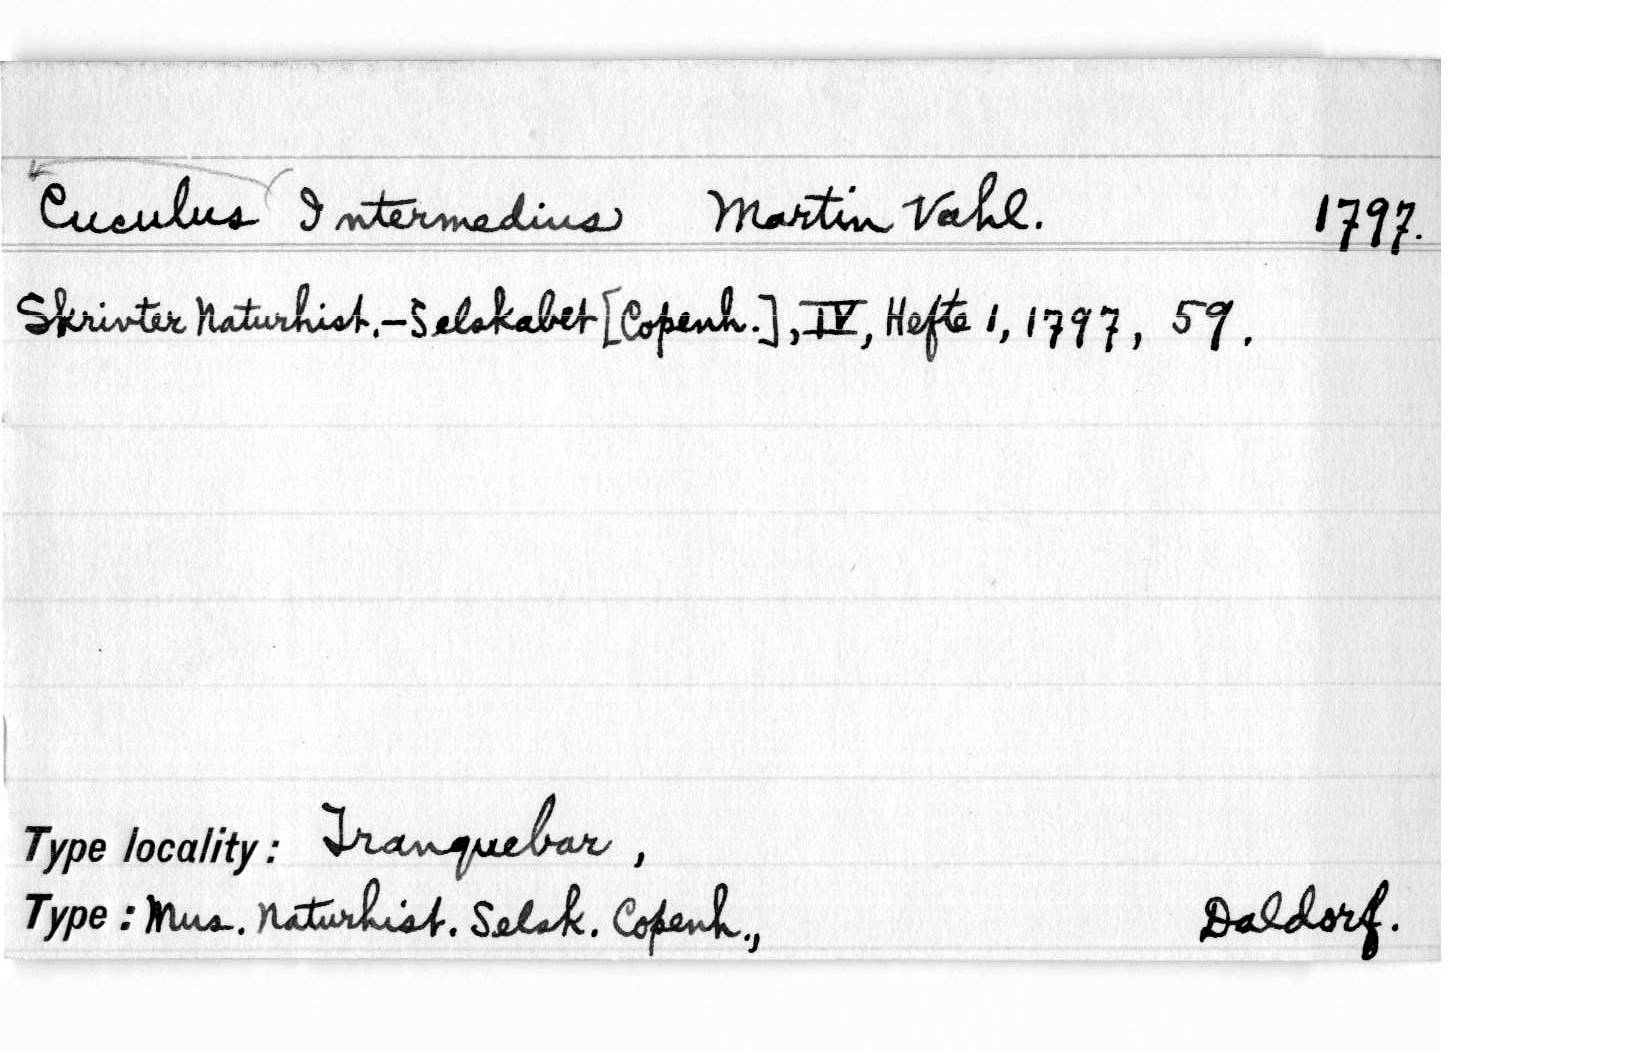 Cuculus Intermedius Martin Vahl. 1797.
Skrivter Naturhist.-Selskabet [Copenh.], IV, Hefte 1, 1797, 59.
Type locality: Tranquebar,
Type: Mus. Naturhist. Selsk. Copenh., Daldorf.